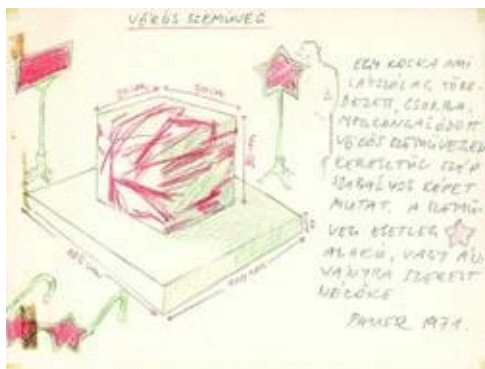 VÖRÖS SZEMÜVEG
50 CM
EGY KOCKA AMI
LÁTSZÓLAG TÖRE-
DEZETT, CSORBA,
MEGRONGÁLÓDOTT
VÖRÖS SZEMÜVEGEN
KERESZTÜL SZÉP
SZABÁLYOS KÉPET
MUTAT. A SZEMÜ-
VEG ESETLEG
ALAKÚ, VAGY ÁLL-
VÁNYRA SZERELT
NÉZŐKE
PAUER 1971.